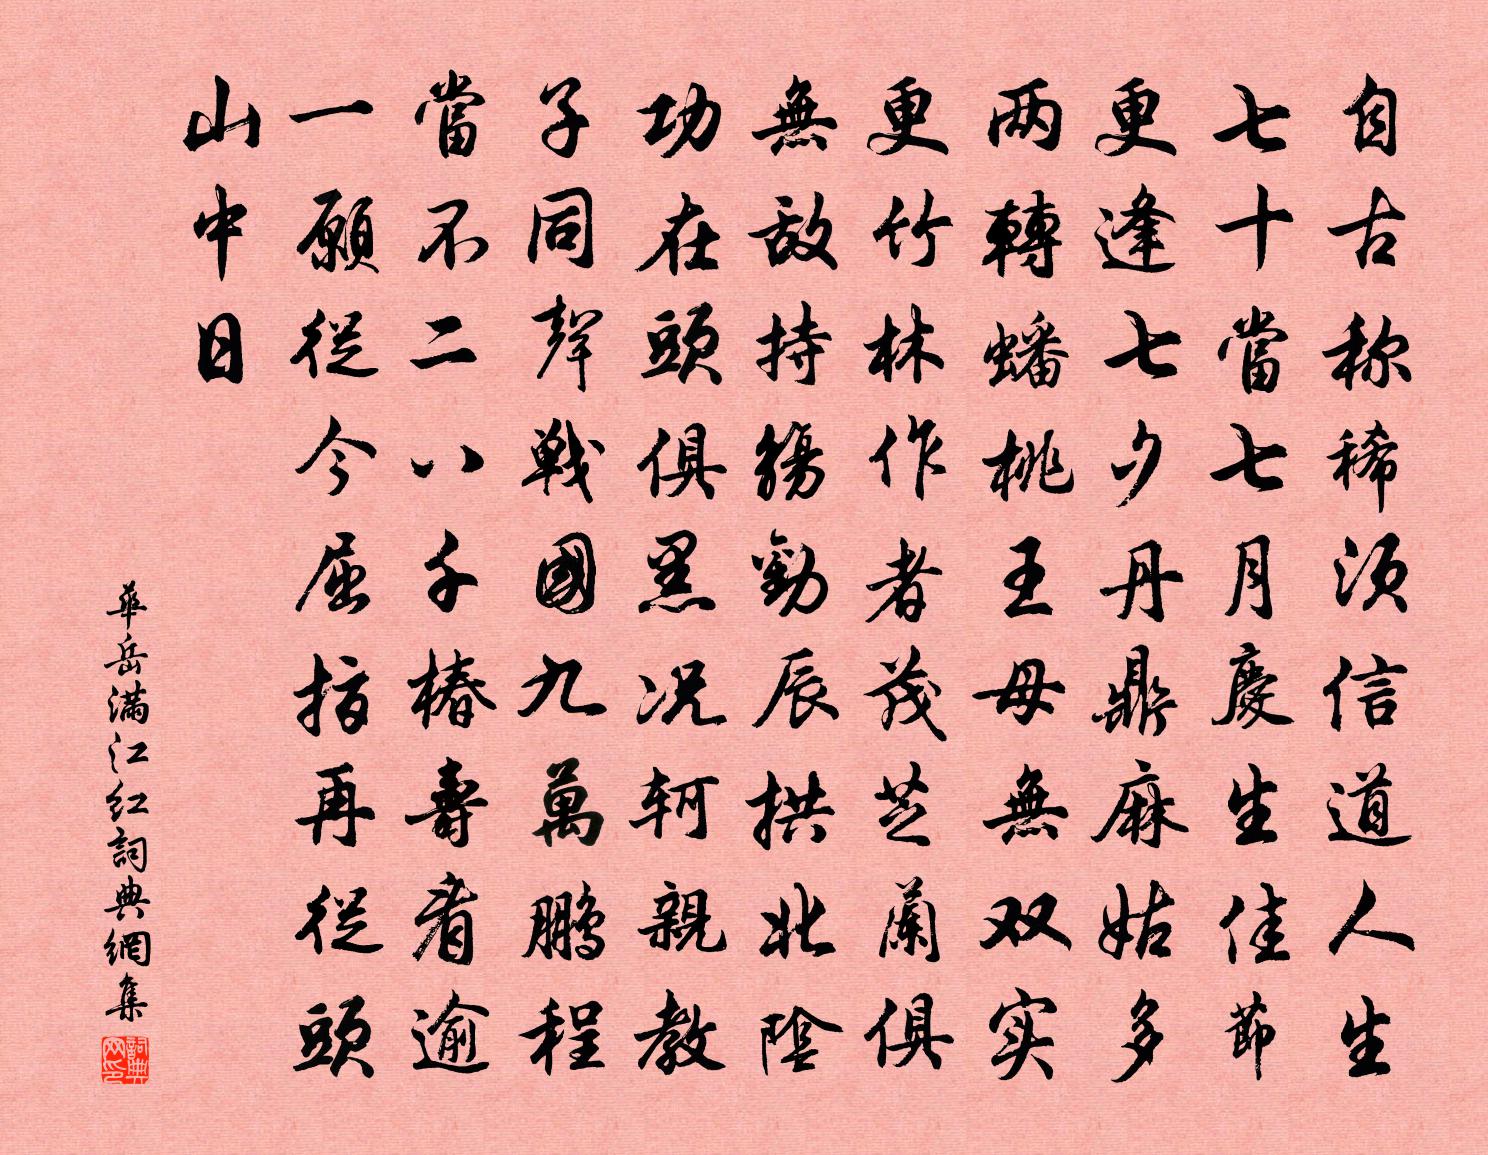 自古称稀须信道人生
七十當七月慶生佳節
更逢七夕丹鼎麻姑多
两轉蟠桃王母無双实
更竹林作者茂芝蘭俱
無敌持觴勸辰拱北陰
功在頭俱黑况轲親教
子同聲戰國九萬鹏程
當不二八千椿壽看逾
一願從今屈指再從頭
山中日
華岳满江红詞典網集
詞典网印